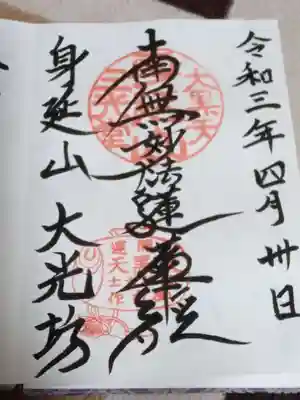 令和三年四月卅日
南無妙法蓮華経
身延山 大光坊
大黒天